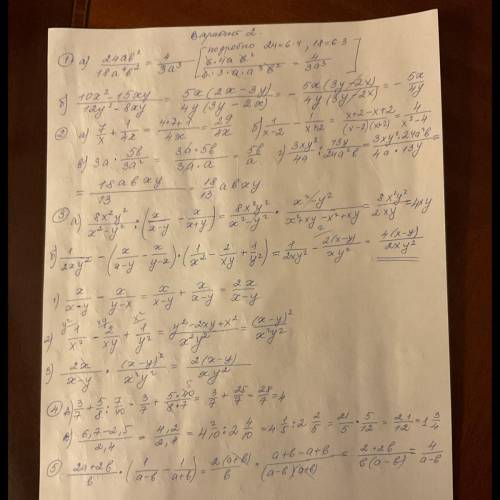 Вариант 2.
① а) 24ab²/18a⁴b² = 4/3a³ [подробно 24=6·4, 18=6·3 6·4a b²/6·3·a·a³b² = 4/3a³]
б) 10x²-15xy/12y²-8xy = 5x(2x-3y)/4y(3y-2x) = -5x(3y-2x)/4y(3y-2x) = -5x/4y
② а) 7/x + 1/4x = 4·7+1/4x = 29/4x б) 1/x-2 - 1/x+2 = x+2-x+2/(x-2)(x+2) = 4/x²-4
в) 3a · 5b/3a² = 3a·5b/3a·a = 5b/a г) 3xy²/4a : 13y/24a²b = 3xy²·24a²b/4a·13y =
= 18abxy/13 = 18/13 abxy
③ а) 8x²y²/x²-y² : (x/x-y - x/x+y) = 8x²y²/x²-y² · x²-y²/x²+xy-x²+xy = 8x²y²/2xy = 4xy
б) 1/2xy² - (x/x-y - x/y-x)·(1/x² - 2/xy + 1/y²) = 1/2xy² - 2(x-y)/xy² = 4(x-y)/2xy²
1) x/x-y - x/y-x = x/x-y + x/x-y = 2x/x-y
2) 1/x² - 2/xy + 1/y² = y²-2xy+x²/x²y² = (x-y)²/x²y²
3) 2x/x-y · (x-y)²/x²y² = 2(x-y)/xy²
④ 3/7 + 5/8 : 7/10 = 3/7 + 5·10/8·7 = 3/7 + 25/7 = 28/7 = 4
в) 6,7-2,5/2,4 = 4,2/2,4 = 4 2/10 : 2 4/10 = 4 1/5 : 2 2/5 = 21/5 · 5/12 = 21/12 = 1 3/4
⑤ 2a+2b/b · (1/a-b - 1/a+b) = 2(a+b)/b · a+b-a+b/(a-b)(a+b) = 2·2b/b(a-b) = 4/a-b